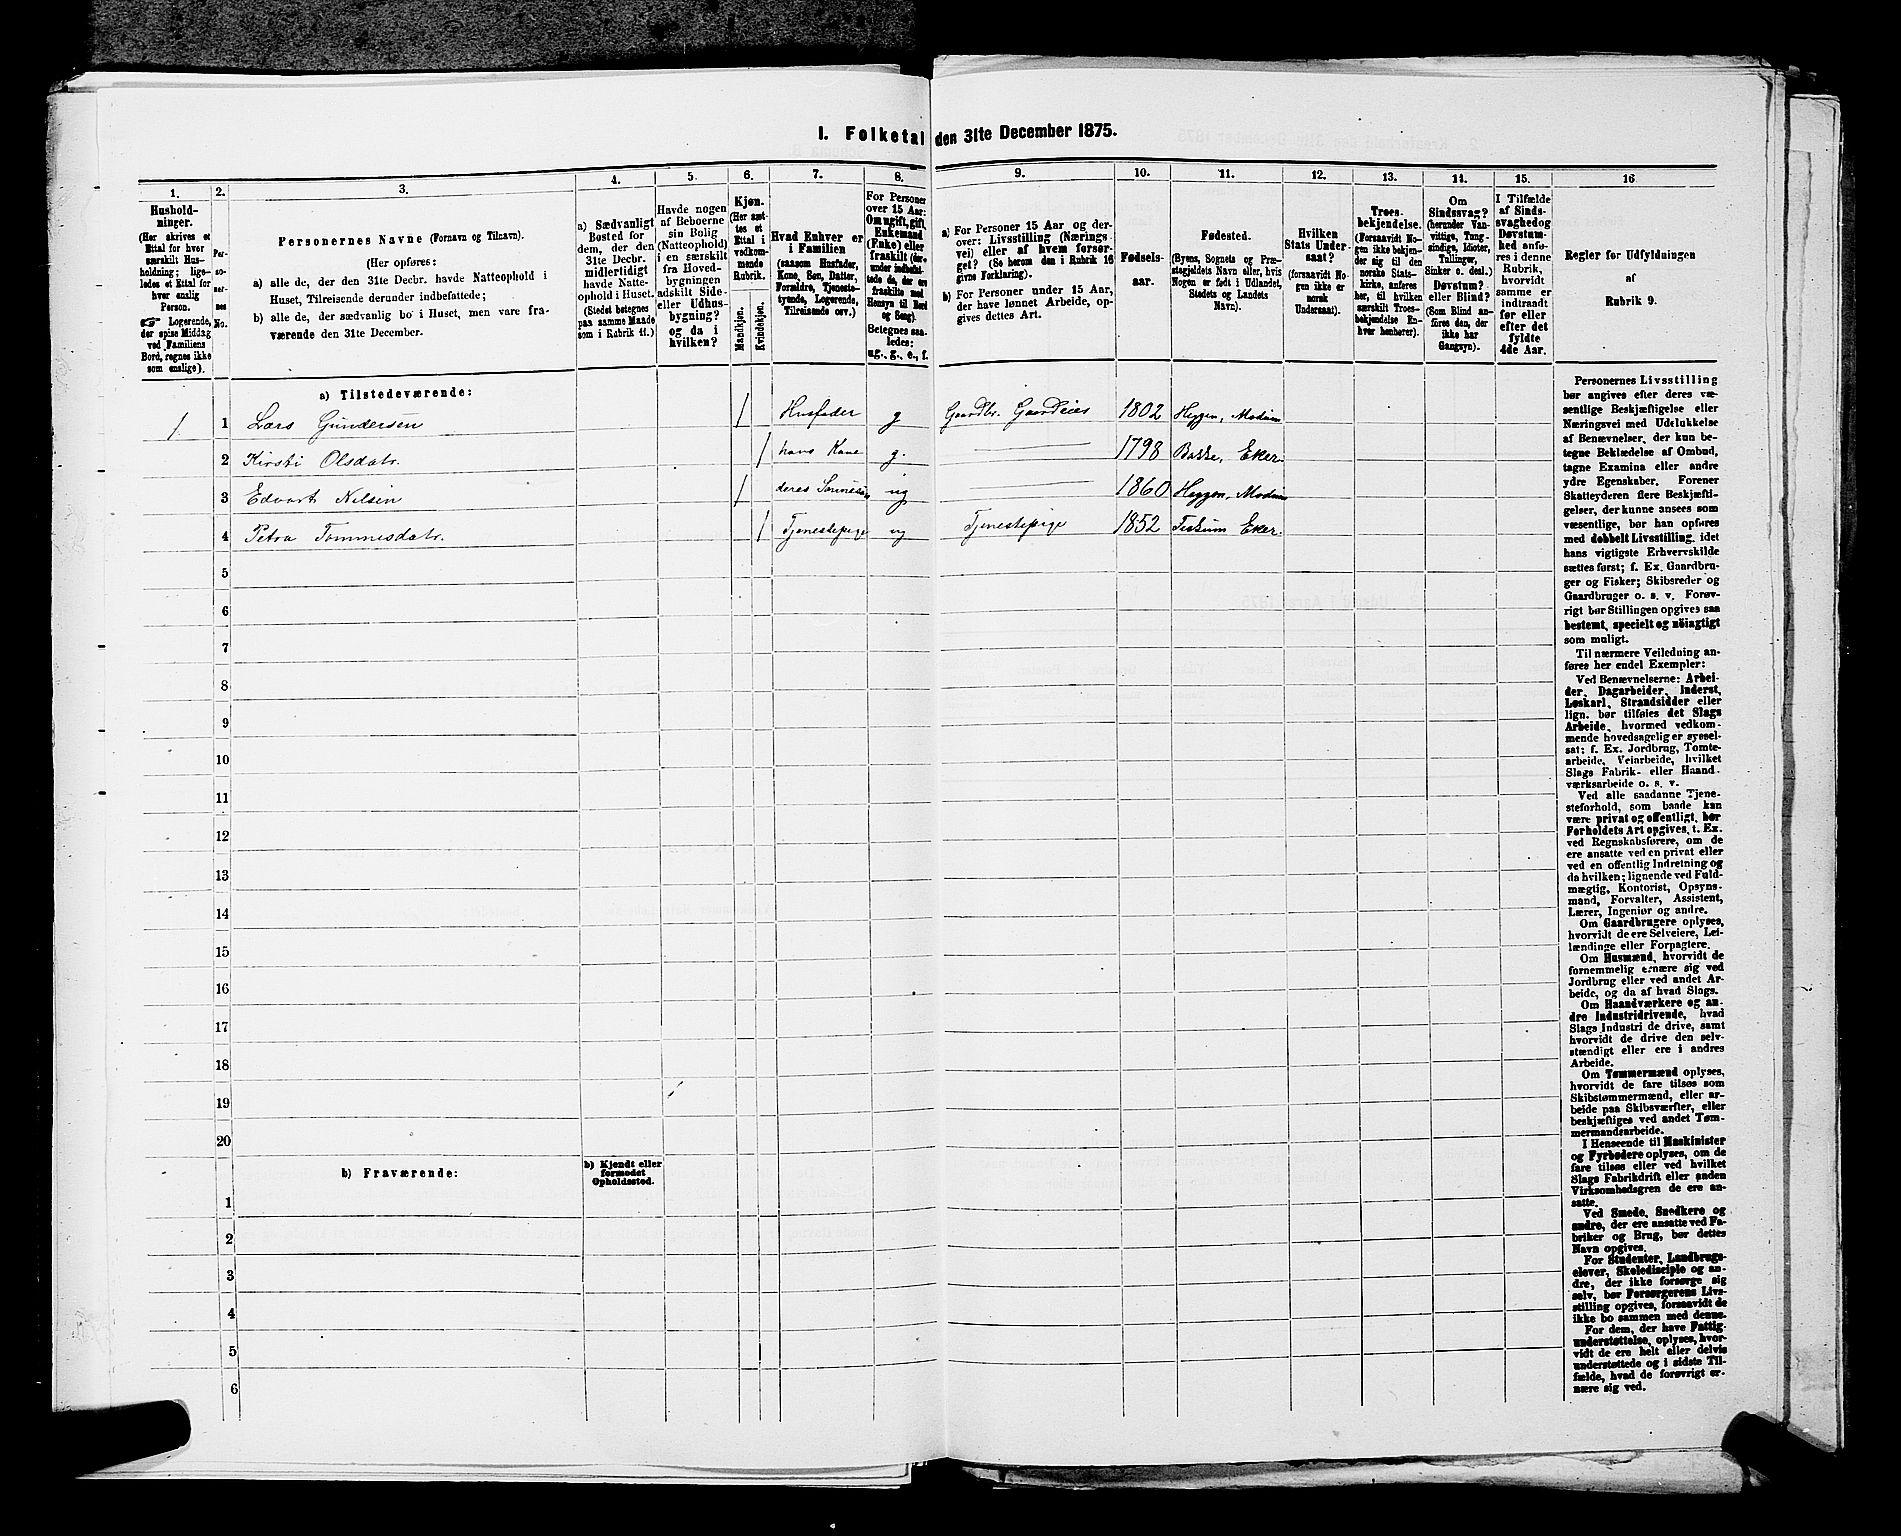 I. Folketal den 31te December 1875.
1.
Hushold-
ninger.
(Her skrives et
Ettal for hver
særskilt Hus-
holdning; lige-
ledes et Ettal for
hver enslig
Person.
☞ Logerende,
der spise Middag
ved Familiens
Bord, regnes ikke
som enslige).
2.
Per-
so-
ner-
nes
No.
3.
Personernes Navne (Fornavn og Tilnavn).
(Her opføres:
a) alle de, der den 31te Decbr. havde Natteophold i
Huset, Tilreisende derunder indbefattede;
b) alle de, der sædvanlig bo i Huset, men vare fra-
værende den 31te December.
4.
a) Sædvanligt
Bosted for
dem, der den
31te Decbr.
midlertidigt
havde Natte-
ophold i Huset.
(Stedet betegnes
paa samme Maade
som i Rubrik 11.)
5.
Havde nogen
af Beboerne
sin Bolig
(Natteophold)
i en særskilt
fra Hoved-
bygningen
adskilt Side-
eller Udhus-
bygning?
og da i
hvilken?
6.
Kjøn.
(Her sæt-
tes et
Ettal i
vedkom-
mende
Rubrik.
Mandkjøn.
Kvindekjøn.
7.
Hvad Enhver er
i Familien
(saasom Husfader,
Kone, Søn, Datter,
Forældre, Tjeneste-
tyende, Logerende,
Tilreisende osv.)
8.
For Personer
over 15 Aar:
Om ugift, gift,
Enkemand
(Enke) eller
fraskilt (der-
under indbefat-
tede de, der ere
fraskilte med
Hensyn til Bord
og Seng).
Betegnes saa-
ledes:
ug., g., e., f.
9.
a) For Personer 15 Aar og der-
over: Livsstilling (Nærings-
vei) eller af hvem forsør-
get? (Se herom den i Rubrik 16
givne Forklaring).
b) For Personer under 15 Aar,
der have lønnet Arbeide, op-
gives dettes Art.
10.
Fødsels-
aar.
11.
Fødested.
(Byens, Sognets og Præ-
stegjeldets Navn eller, hvis
Nogen er født i Udlandet,
Stedets og Landets
Navn).
12.
Hvilken
Stats Under-
saat?
(forsaavidt No-
gen ikke er
norsk
Undersaat).
13.
Troes-
bekjendelse.
(Forsaavidt No-
gen ikke bekjen-
der sig til den
norske Stats-
kirke, anføres
her, til hvilken
særskilt Troes-
bekjendelse En-
hver henhører).
14.
Om
Sindssvag?
(herunder Van-
vittige, Tung-
sindige, Idioter,
Tullinger,
Sinker o. desl.)
Døvstum?
eller Blind?
(Som Blind an-
føres den, der
ikke har
Gangsyn).
15.
I Tilfælde
af Sinds-
svaghed og
Døvstum-
hed anfø-
res i denne
Rubrik,
hvorvidt
samme er
indtraadt
før eller
efter det
fyldte
4de Aar.
16
Regler for Udfyldningen
af
Rubrik 9.
a) Tilstedeværende:
1 1 Lars Gundersen 1 Husfader g Gaardbr. Gaardeier 1802 Heggen, Modum
2 Kirsti Olsdatr. 1 hans Kone g. 1798 Bakke, Eker.
3 Edvart Nilsen 1 deres Sønnesøn ug 1860 Heggen, Modum
4 Petra Tommesdatr. 1 Tjenestepige ug Tjenestepige 1852 Fiskum Eker.
5
6
7
8
9
10
11
12
13
14
15
16
17
18
19
20
b) Fraværende:
b) Kjendt eller
formodet
Opholdssted.
1
2
3
4
5
6
Personernes Livsstilling
bør angives efter deres væ-
sentlige Beskjæftigelse eller
Næringsvei med Udelukkelse
af Benævnelser, der kun be-
tegne Beklædelse af Ombud,
tagne Examina eller andre
ydre Egenskaber. Forener
Skatteyderen flere Beskjæfti-
gelser, der kunne ansees som
væsentlige, bør han opføres
med dobbelt Livsstilling, idet
hans vigtigste Erhvervskilde
sættes først; f. Ex. Gaardbru-
ger og Fisker; Skibsreder og
Gaardbruger o. s. v. Forøv-
rigt bør Stillingen opgives saa
bestemt, specielt og nöiagtigt
som muligt.
Til nærmere Veiledning an-
føres her endel Exempler:
Ved Benævnelserne: Arbei-
der, Dagarbeider, Inderst,
Løskarl, Strandsidder eller
lign. bør tilføies det Slags
Arbeide, hvormed vedkom-
mende hovedsagelig er syssel-
sat; f. Ex. Jordbrug, Tomte-
arbeide, Veiarbeide, hvilket
Slags Fabrik- eller Haand-
værksarbeide o. s. v.
Ved alle saadanne Tjene-
steforhold, som baade kan
være privat og offentligt, bør
Forholdets Art opgives, t. Ex.
ved Regnskabsførere, om de
ere ansatte ved en privat eller
ved en offentlig Indretning og
da hvilken; lignende ved Fuld-
mægtig, Kontorist, Opsyns-
mand, Forvalter, Assistent,
Lærer, Ingeniør og andre.
Om Gaardbrugere oplyses,
hvorvidt de ere Selveiere, Lei-
lændinge eller Forpagtere.
Om Husmænd, hvorvidt de
fornemmelig ernære sig ved
Jordbrug eller ved andet Ar-
beide, og da af hvad Slags.
Om Haandværkere og an-
dre Industridrivende, hvad
Slags Industri de drive, samt
hvorvidt de drive den selv-
stændigt eller ere i andres
Arbeide.
Om Tømmermænd oplyses,
hvorvidt de fare tilsøs som
Skibstømmermænd, eller ar-
beide paa Skibsværfter, eller
beskjæftiges ved andet Tøm-
mermandsarbeide.
I Henseende til Maskinister
og Fyrbødere oplyses, om de
fare tilsøs eller ved hvilket
Slags Fabrikdrift eller anden
Virksomhedsgren de ere an-
satte.
Ved Smede, Snedkere og
andre, der ere ansatte ved Fa-
briker og Brug, bør dettes
Navn opgives.
For Studenter, Landbrugs-
elever, Skoledisciple og an-
dre, der ikke forsørge sig
selv, bør Forsørgerens Livs-
stilling opgives, forsaavidt de
ikke bo sammen med denne.
For dem, der have Fattig-
understøttelse, oplyses, hvor-
vidt de ere helt eller delvis
understøttede og i sidste Til-
fælde, hvad de forøvrigt er-
nære sig ved.